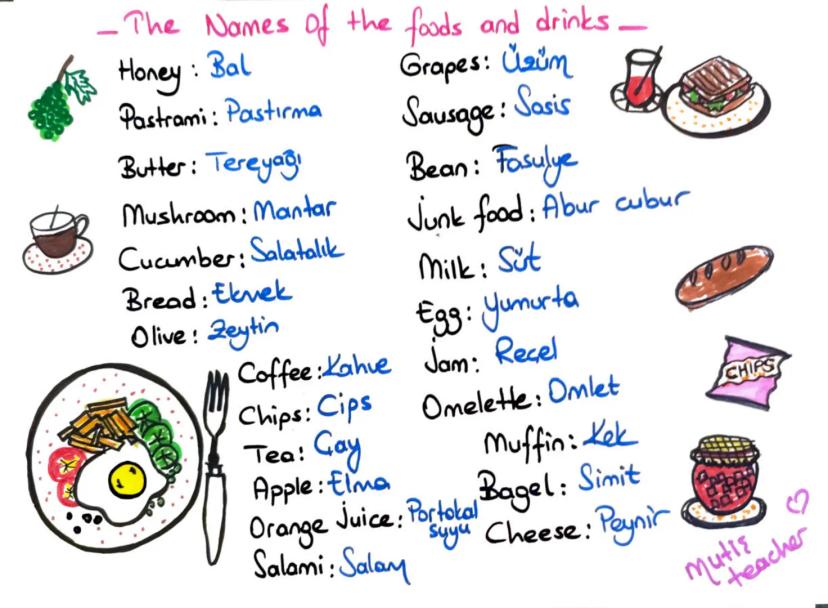 _ The Names Of the foods and drinks _
Honey : Bal
Pastrami : Pastırma
Butter : Tereyağı
Mushroom : Mantar
Cucumber : Salatalık
Bread : Ekmek
Olive : Zeytin
Coffee : Kahve
Chips : Cips
Tea : Çay
Apple : Elma
Orange juice : Portakal
suyu
Salami : Salam
Grapes : Üzüm
Sausage : Sosis
Bean : Fasulye
Junk food : Abur cubur
Milk : Süt
Egg : Yumurta
Jam : Reçel
Omelette : Omlet
Muffin : Kek
Bagel : Simit
Cheese : Peynir
CHIPS
Mutlu
teacher